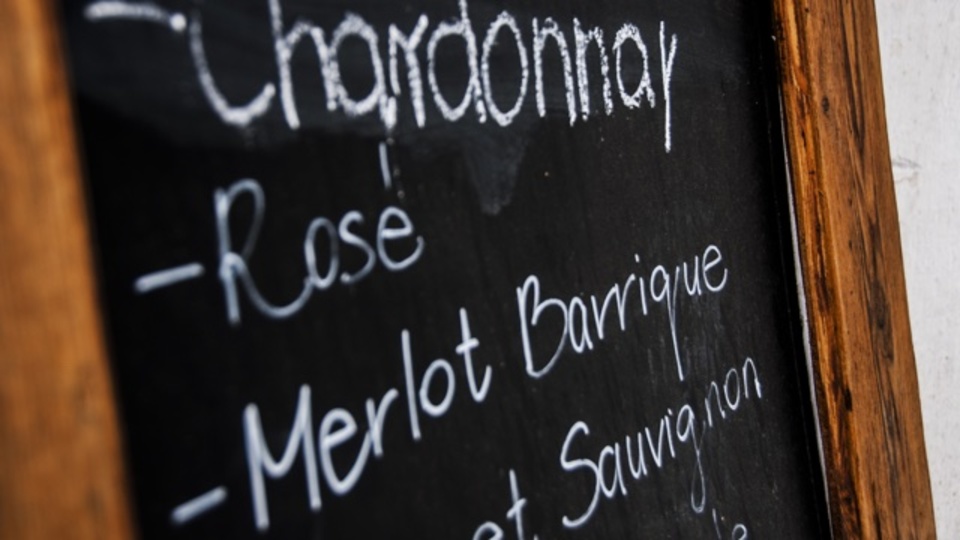 - Chardonnay
- Rosé
- Merlot Barrique
et Sauvignon